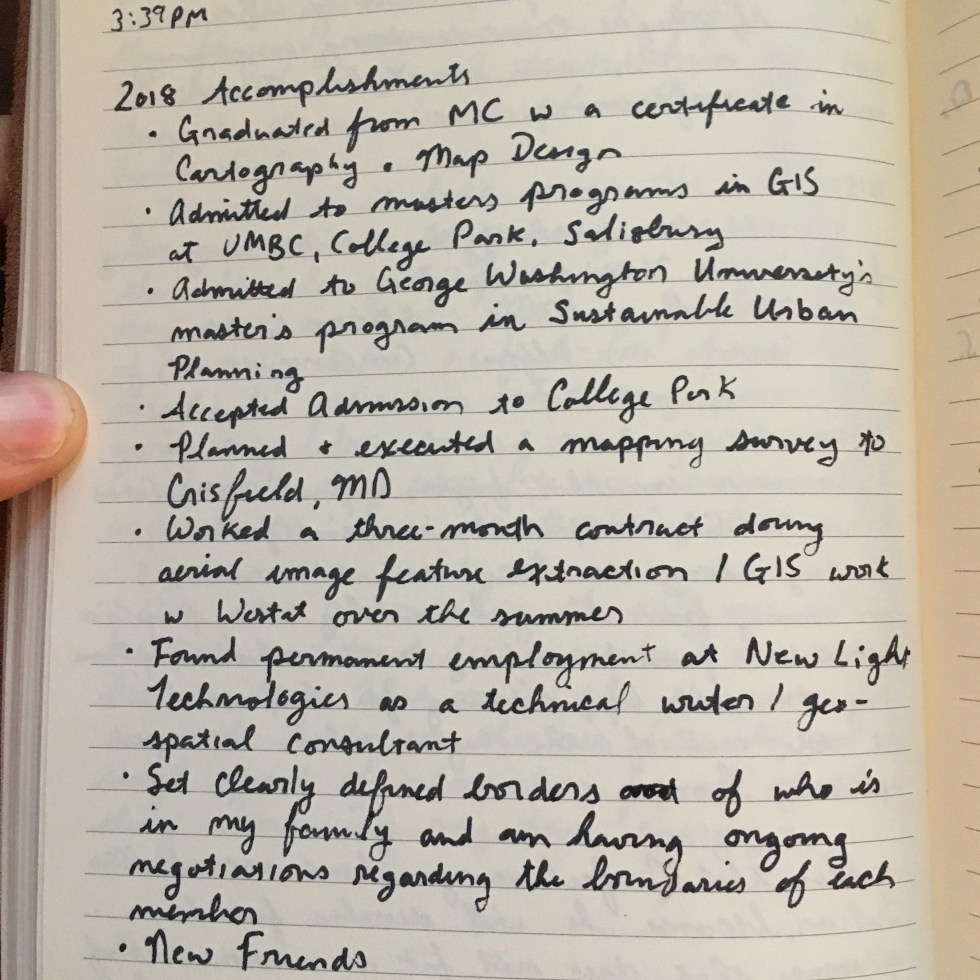 3:39 PM
2018 Accomplishments
• Graduated from MC w a certificate in
Cartography • Map Design
• Admitted to masters programs in GIS
at UMBC, College Park, Salisbury
• Admitted to George Washington University's
master's program in Sustainable Urban
Planning
• Accepted Admission to College Park
• Planned + executed a mapping survey to
Crisfield, MD
• Worked a three-month contract doing
aerial image feature extraction / GIS work
w Westat over the summer
• Found permanent employment at New Light
Technologies as a technical writer / geo-
spatial consultant
• Set clearly defined borders of who is
in my family and am having ongoing
negotiations regarding the boundaries of each
member
• New Friends